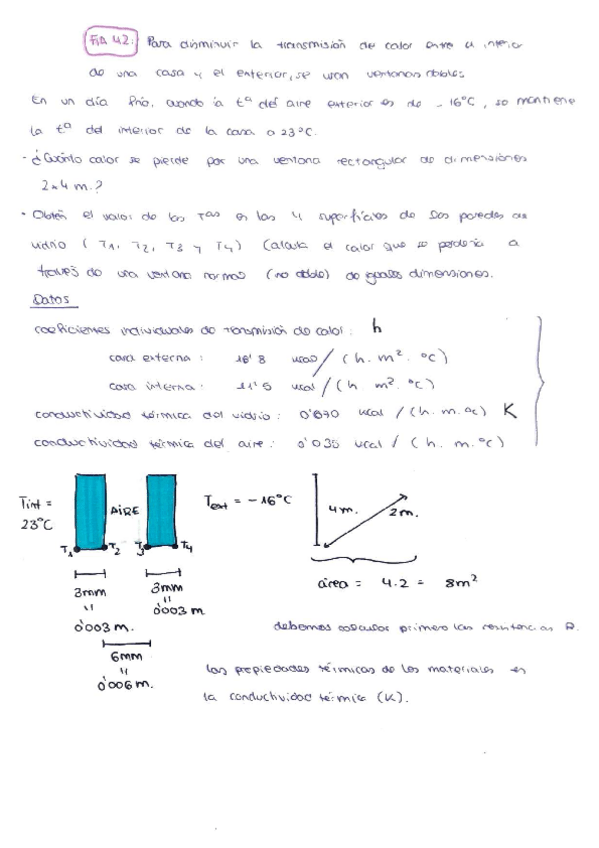 FIA 42: Para disminuir la transmisión de calor entre el interior
de una casa y el exterior, se usan ventanas dobles.
En un día frío, cuando la tª del aire exterior es de -16°C, se mantiene
la tª del interior de la casa a 23°C.
- ¿Cuánto calor se pierde por una ventana rectangular de dimensiones
2x4 m.?
• Obtén el valor de las Tas en las 4 superficies de las paredes de
vidrio (T1, T2, T3 y T4) Calcula el calor que se perdería a
través de una ventana normal (no doble) de iguales dimensiones.
Datos
coeficientes individuales de transmisión de calor: h
cara externa: 16'8 kcal / (h. m². °C)
cara interna: 11'5 kcal / (h m². °C)
conductividad térmica del vidrio: 0'670 kcal / (h. m. °C) K
conductividad térmica del aire: 0'035 kcal / (h. m. °C)
Tint = 23°C
AIRE
Text = -16°C
4m.
2m.
T1 T2 T3 T4
área = 4.2 = 8m²
3mm
3mm
"
"
0'003 m.
0'003 m
debemos calcular primero las resistencias R.
6mm
"
0'006 m.
las propiedades térmicas de los materiales es
la conductividad térmica (K).